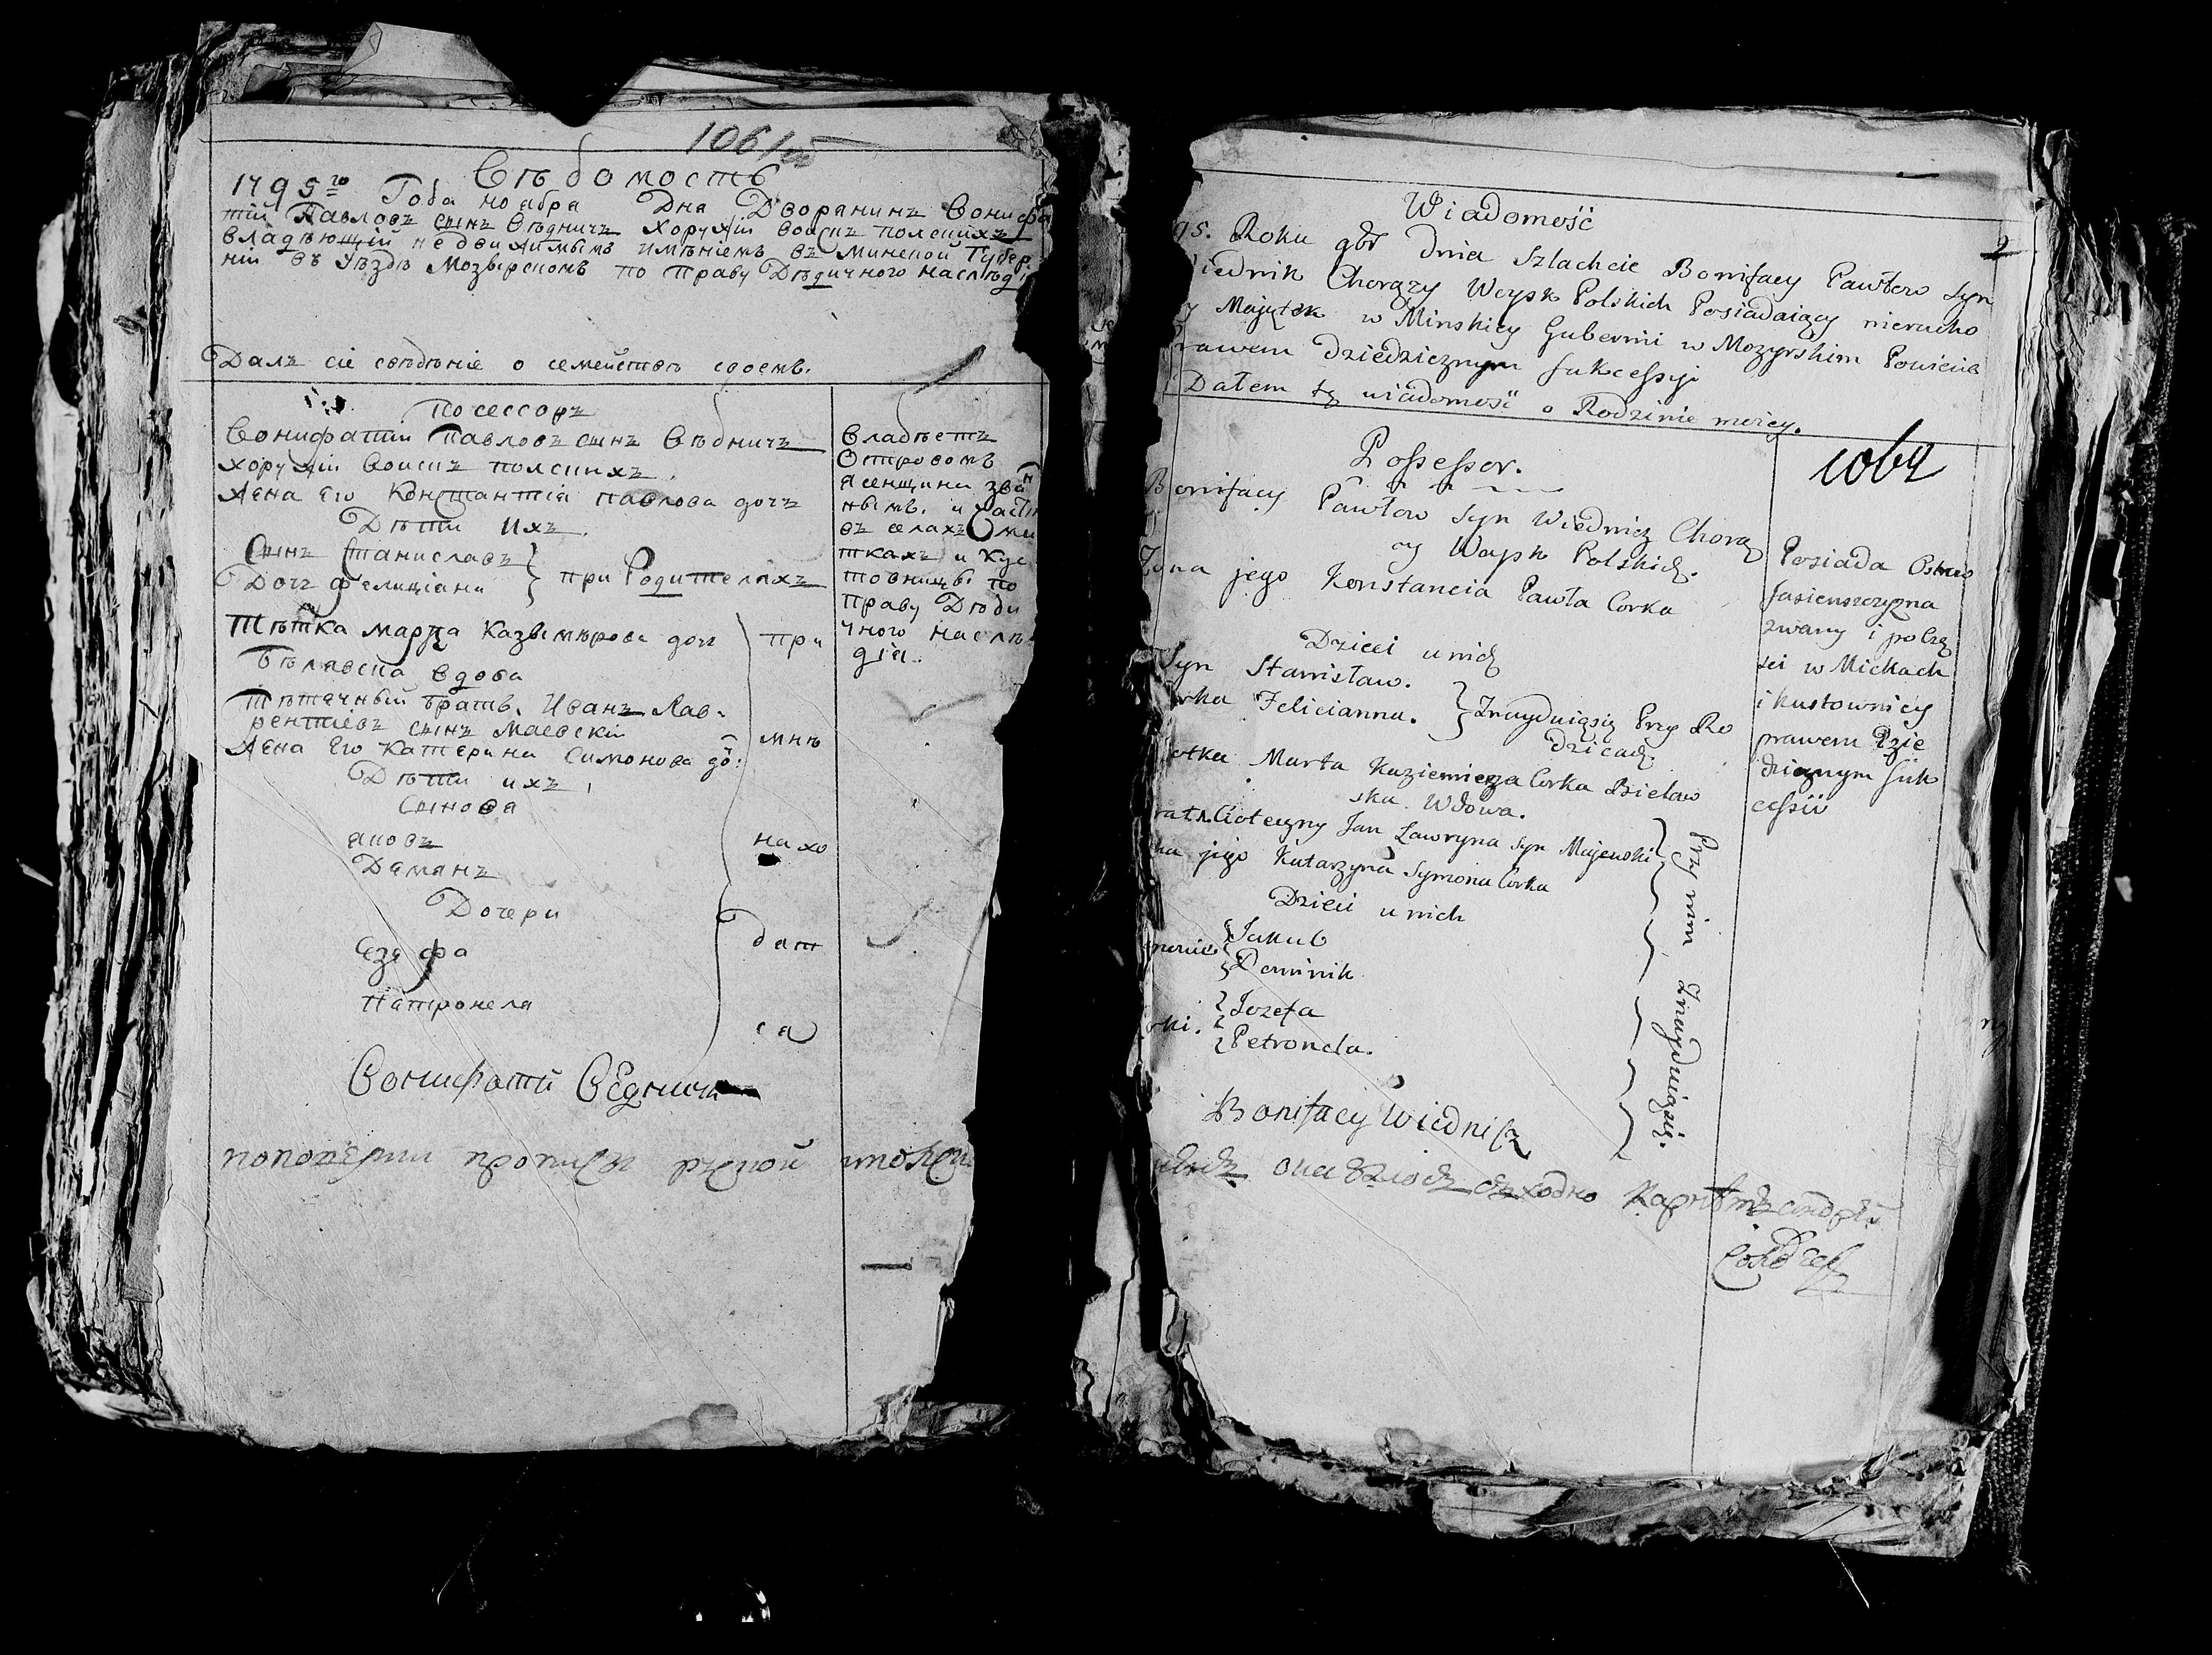 106
Вѣдомость
1795го Года ноабра Дна Дворанинъ Вонифа
тій Павловъ сынъ Вѣдничъ хоружіи воисъ полскихъ
владѣющій недвижимымъ имѣніемъ въ Минской Губер
ніи въ Уѣздѣ Мозырскомъ по праву Дѣдичного наслѣд
Далъ сіе свѣдѣніе о семействѣ своемъ.
Посессоръ
Вонифатіи Павловъ сынъ Вѣдничъ
хоружіи воискъ полскихъ.
Жена Его Константія павлова дочъ
Дѣти Ихъ
Сынъ Станиславъ
Дочъ Фелиціана
при Родителяхъ
Тѣтка марта Казимѣрова доч
Бѣлавска вдова
тѣтечный братъ. Иванъ Лав-
рентіевъ сынъ маевскій
Жена Его Катерина Симонова до:
Дѣти ихъ
Сынова
яковъ
Даманъ
Дочери
Езефа
Патронела
при
мнѣ
нахо
дат
са
Владѣетъ
Островомъ
Ясенщина зва
нымъ. и част
въ селахъ ми
ткахъ и Кус
товницы по
праву Дѣди
чного наслѣ
діа.
Вонифатіи Ведничъ
Wiadomość
2
95. Roku 9br dnia Szlachcic Bonifacy Pawłow syn
iednik Chorąży Woysk Polskich Posiadaiący nierucho
y Majątek w Minskiey Gubernii w Mozyrskim Powiecie
rawem dziedzicznym sukcessyi
Dałem tę wiadomość o Rodzinie moiey.
Possessor.
Bonifacy Pawłow syn Wiednicz Chorą
ży Woysk Polskich.
Zona jego Konstancia Pawła Corka
Dzieci u nich
Syn Stanisław.
orka Felicianna.
Znayduiąsię Przy Ro
dzicach.
otka Marta Kaziemierza Corka Bieław
ska. Wdowa.
rat Cioteczny Jan Ławryna syn Majewski
na jego Katarzyna Symona Corka
Dzieci u nich
Jakub
Dominik
rki.
Jozefa
Petronela.
Przy mim Znayduiąsię.
Posiada Ostrow
Jasienszczyzna
zwany i po Czę
sci w Mickach
i kustownicy
prawem Dzie
dzicznym suk
cessii
Bonifacy Wiednicz